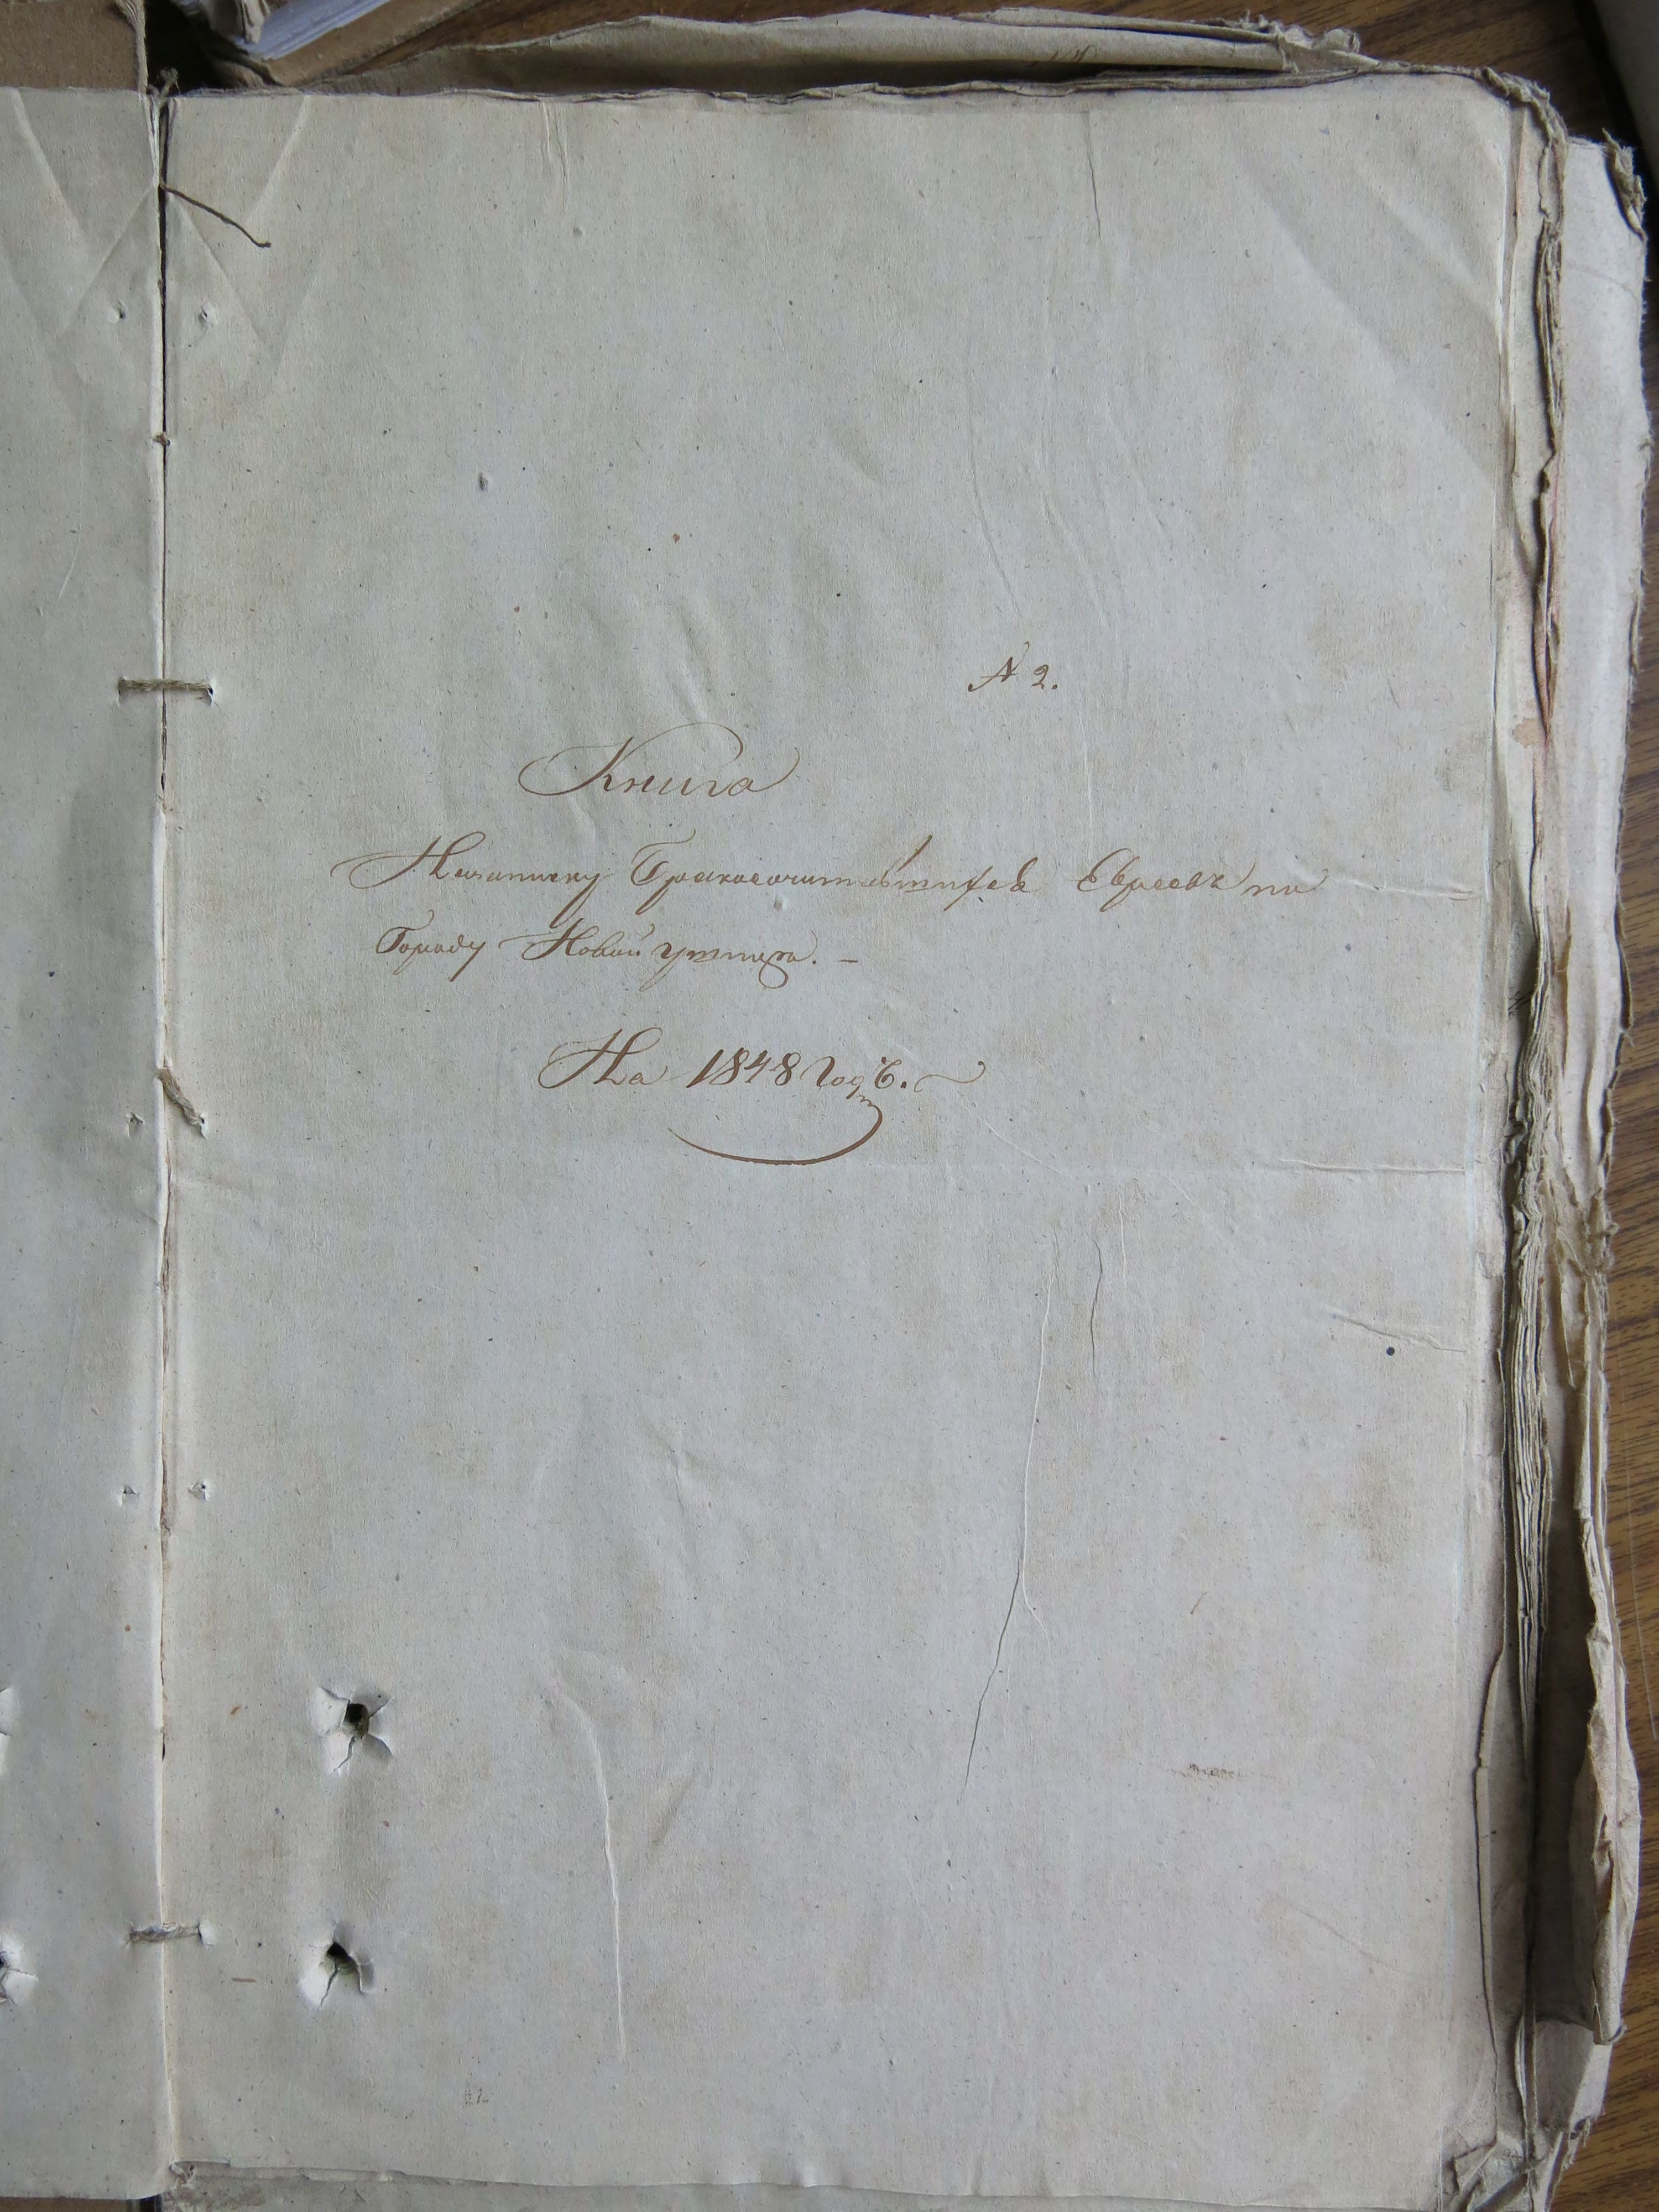 № 2.
Книга
На записку Бракосочитавшихся Евреевъ по
Городу Новой Ушице. –
На 1848 годъ.